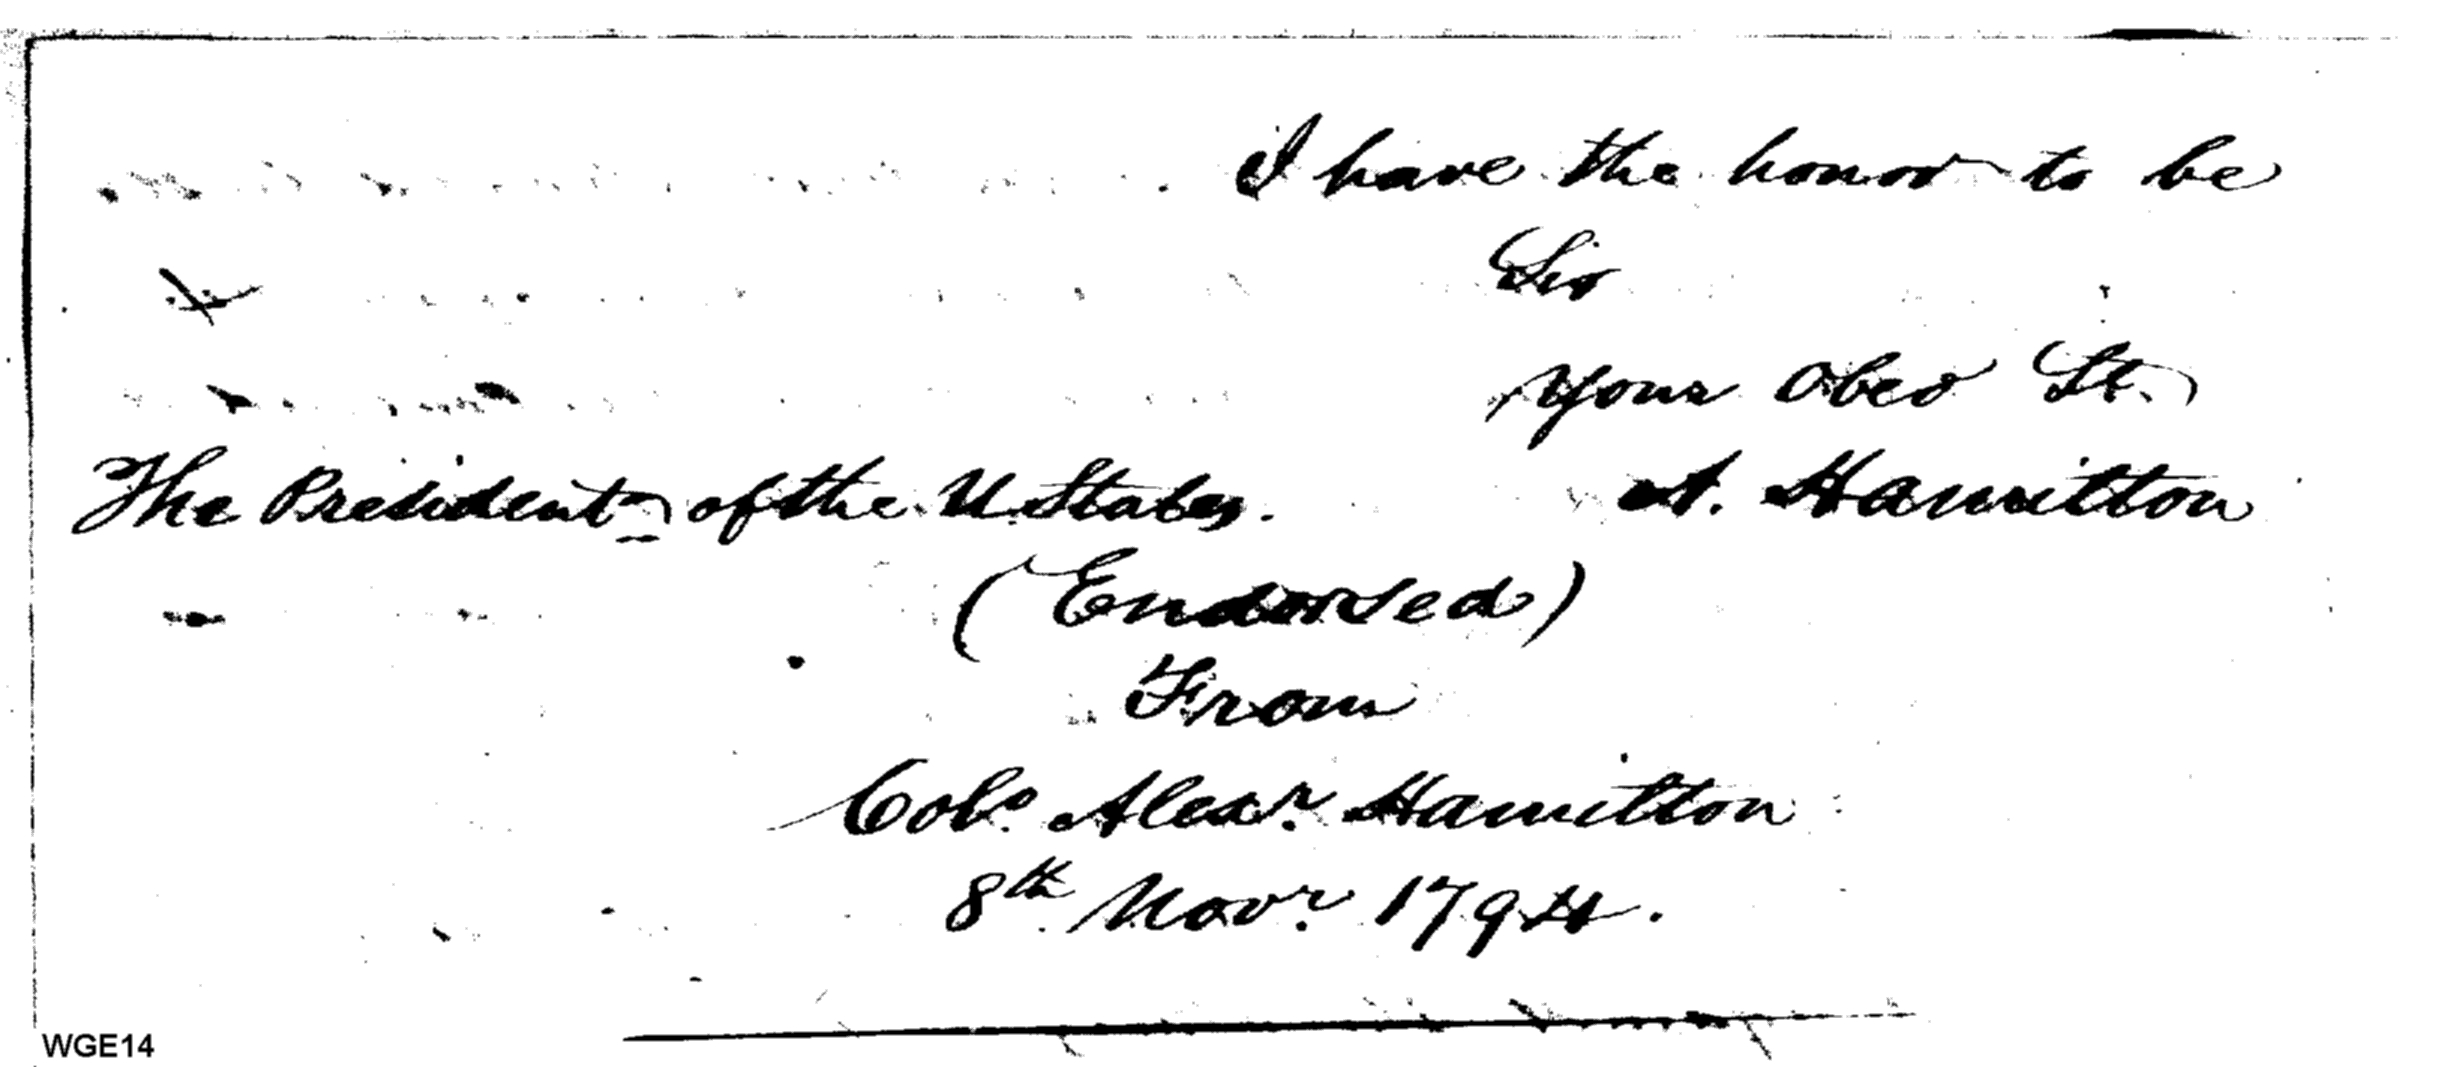 I have the honor to be
Sir
Your Obed St.
The President of the U. States.
A. Hamilton
(Endorsed)
From
Colo. Alexr. Hamilton
8th Novr. 1794.
WGE14